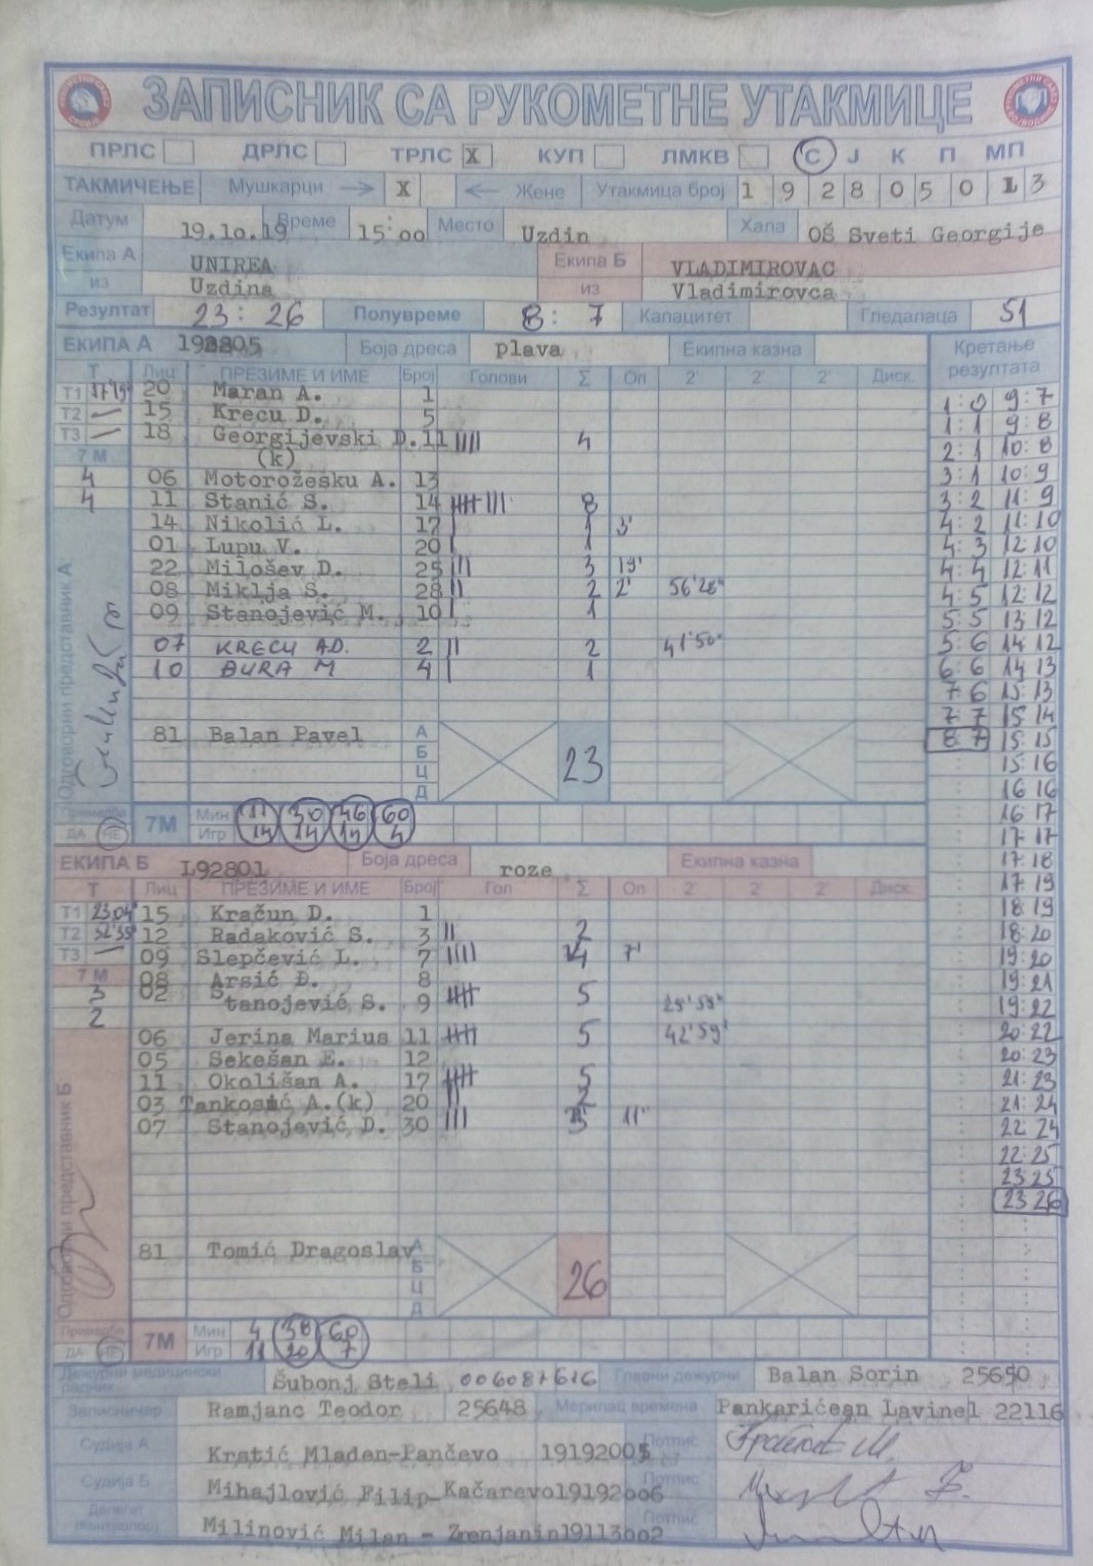 ЗАПИСНИК СА РУКОМЕТНЕ УТАКМИЦЕ
ПРЛС ДРЛС ТРЛС X КУП ЛМКВ С Ј К П МП
ТАКМИЧЕЊЕ Мушкарци X Жене Утакмица број 1 9 2 8 0 5 0 1 3
Датум 19.10.19 Време 15:00 Место Uzdin Хала OŠ Sveti Georgije
Екипа А UNIREA Екипа Б VLADIMIROVAC
из Uzdina из Vladimirovca
Резултат 23: 26 Полувреме 8: 7 Капацитет Гледалаца 51
ЕКИПА А 192805 Боја дреса plava Екипна казна Кретање резултата
Т Лиц ПРЕЗИМЕ И ИМЕ Број Голови Σ Оп 2' 2' 2' Диск.
Т1 20 Maran A. 1
Т2 — 15 Krecu D. 5
Т3 — 18 Georgijevski D. 11 |||| 4
7 М (k)
4 06 Motorožesku A. 13
4 11 Stanić S. 14 8
14 Nikolić L. 17 | 1 3'
01 Lupu V. 20 | 1
22 Milošev D. 25 ||| 3 19'
08 Miklja S. 28 || 2 2' 56'28"
09 Stanojević M. 10 | 1
07 KRECU AD. 2 || 2 41'50"
10 BURA M 4 | 1
81 Balan Pavel А
Б
Ц 23
Д
Одговорни представник А
Примедба ДА НЕ 7М Мин 11 30 46 60
Игр 14 14 14 4
ЕКИПА Б 192801 Боја дреса roze Екипна казна
Т Лиц ПРЕЗИМЕ И ИМЕ Број Гол Σ Оп 2' 2' 2' Диск.
Т1 23 04 15 Kračun D. 1
Т2 52'55" 12 Radaković S. 3 || 2
Т3 — 09 Slepčević L. 7 |||| 4 7'
7 М 08 Arsić Đ. 8
3 02 Stanojević S. 9 5
2
06 Jerina Marius 11 5 42'59"
05 Sekešan E. 12
11 Okolišan A. 17 5
03 A.(k) 20 || 2
07 Stanojević D. 30 ||| 11'
81 Tomić Dragoslav А
Б
Ц 26
Д
Одговорни представник Б
Примедба ДА НЕ 7М Мин 4 38 60
Игр 11 20 7
1:0 9:7
1:1 9:8
2:1 10:8
3:1 10:9
3:2 11:9
4:2 11:10
4:3 12:10
4:4 12:11
4:5 12:12
5:5 13:12
5:6 14:12
6:6 14:13
7 6 15:13
7 7 15 14
8 7 15:15
15:16
16 16
16:17
17:17
17:18
17:19
18:19
18:20
19:20
19:21
19:22
20:22
20:23
21:23
21:24
22:24
22:25
23:25
23 26
Дежурни медицински радник Šubonj Steli 006087616 Главни дежурни Balan Sorin 25650
Записничар Ramjanc Teodor 25648 Мерилац времена Pankaričean Lavinel 22116
Судија А Krstić Mladan-Pančevo 19192005 Потпис
Судија Б Mihajlović Filip-Kačarevo 19192006 Потпис
Делегат (контролор) Milinović Milan - Zrenjanin 19113002 Потпис